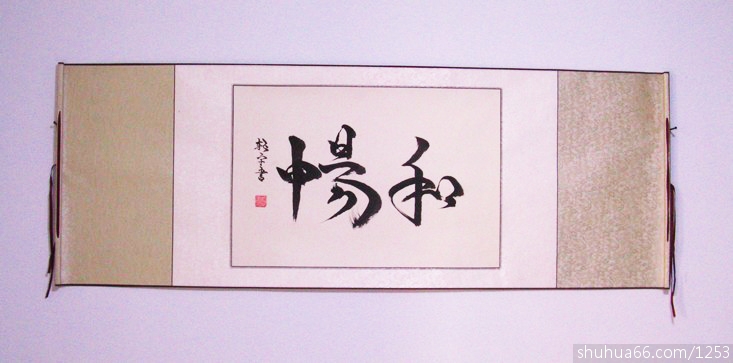 和暢
shuhua66.com/1253